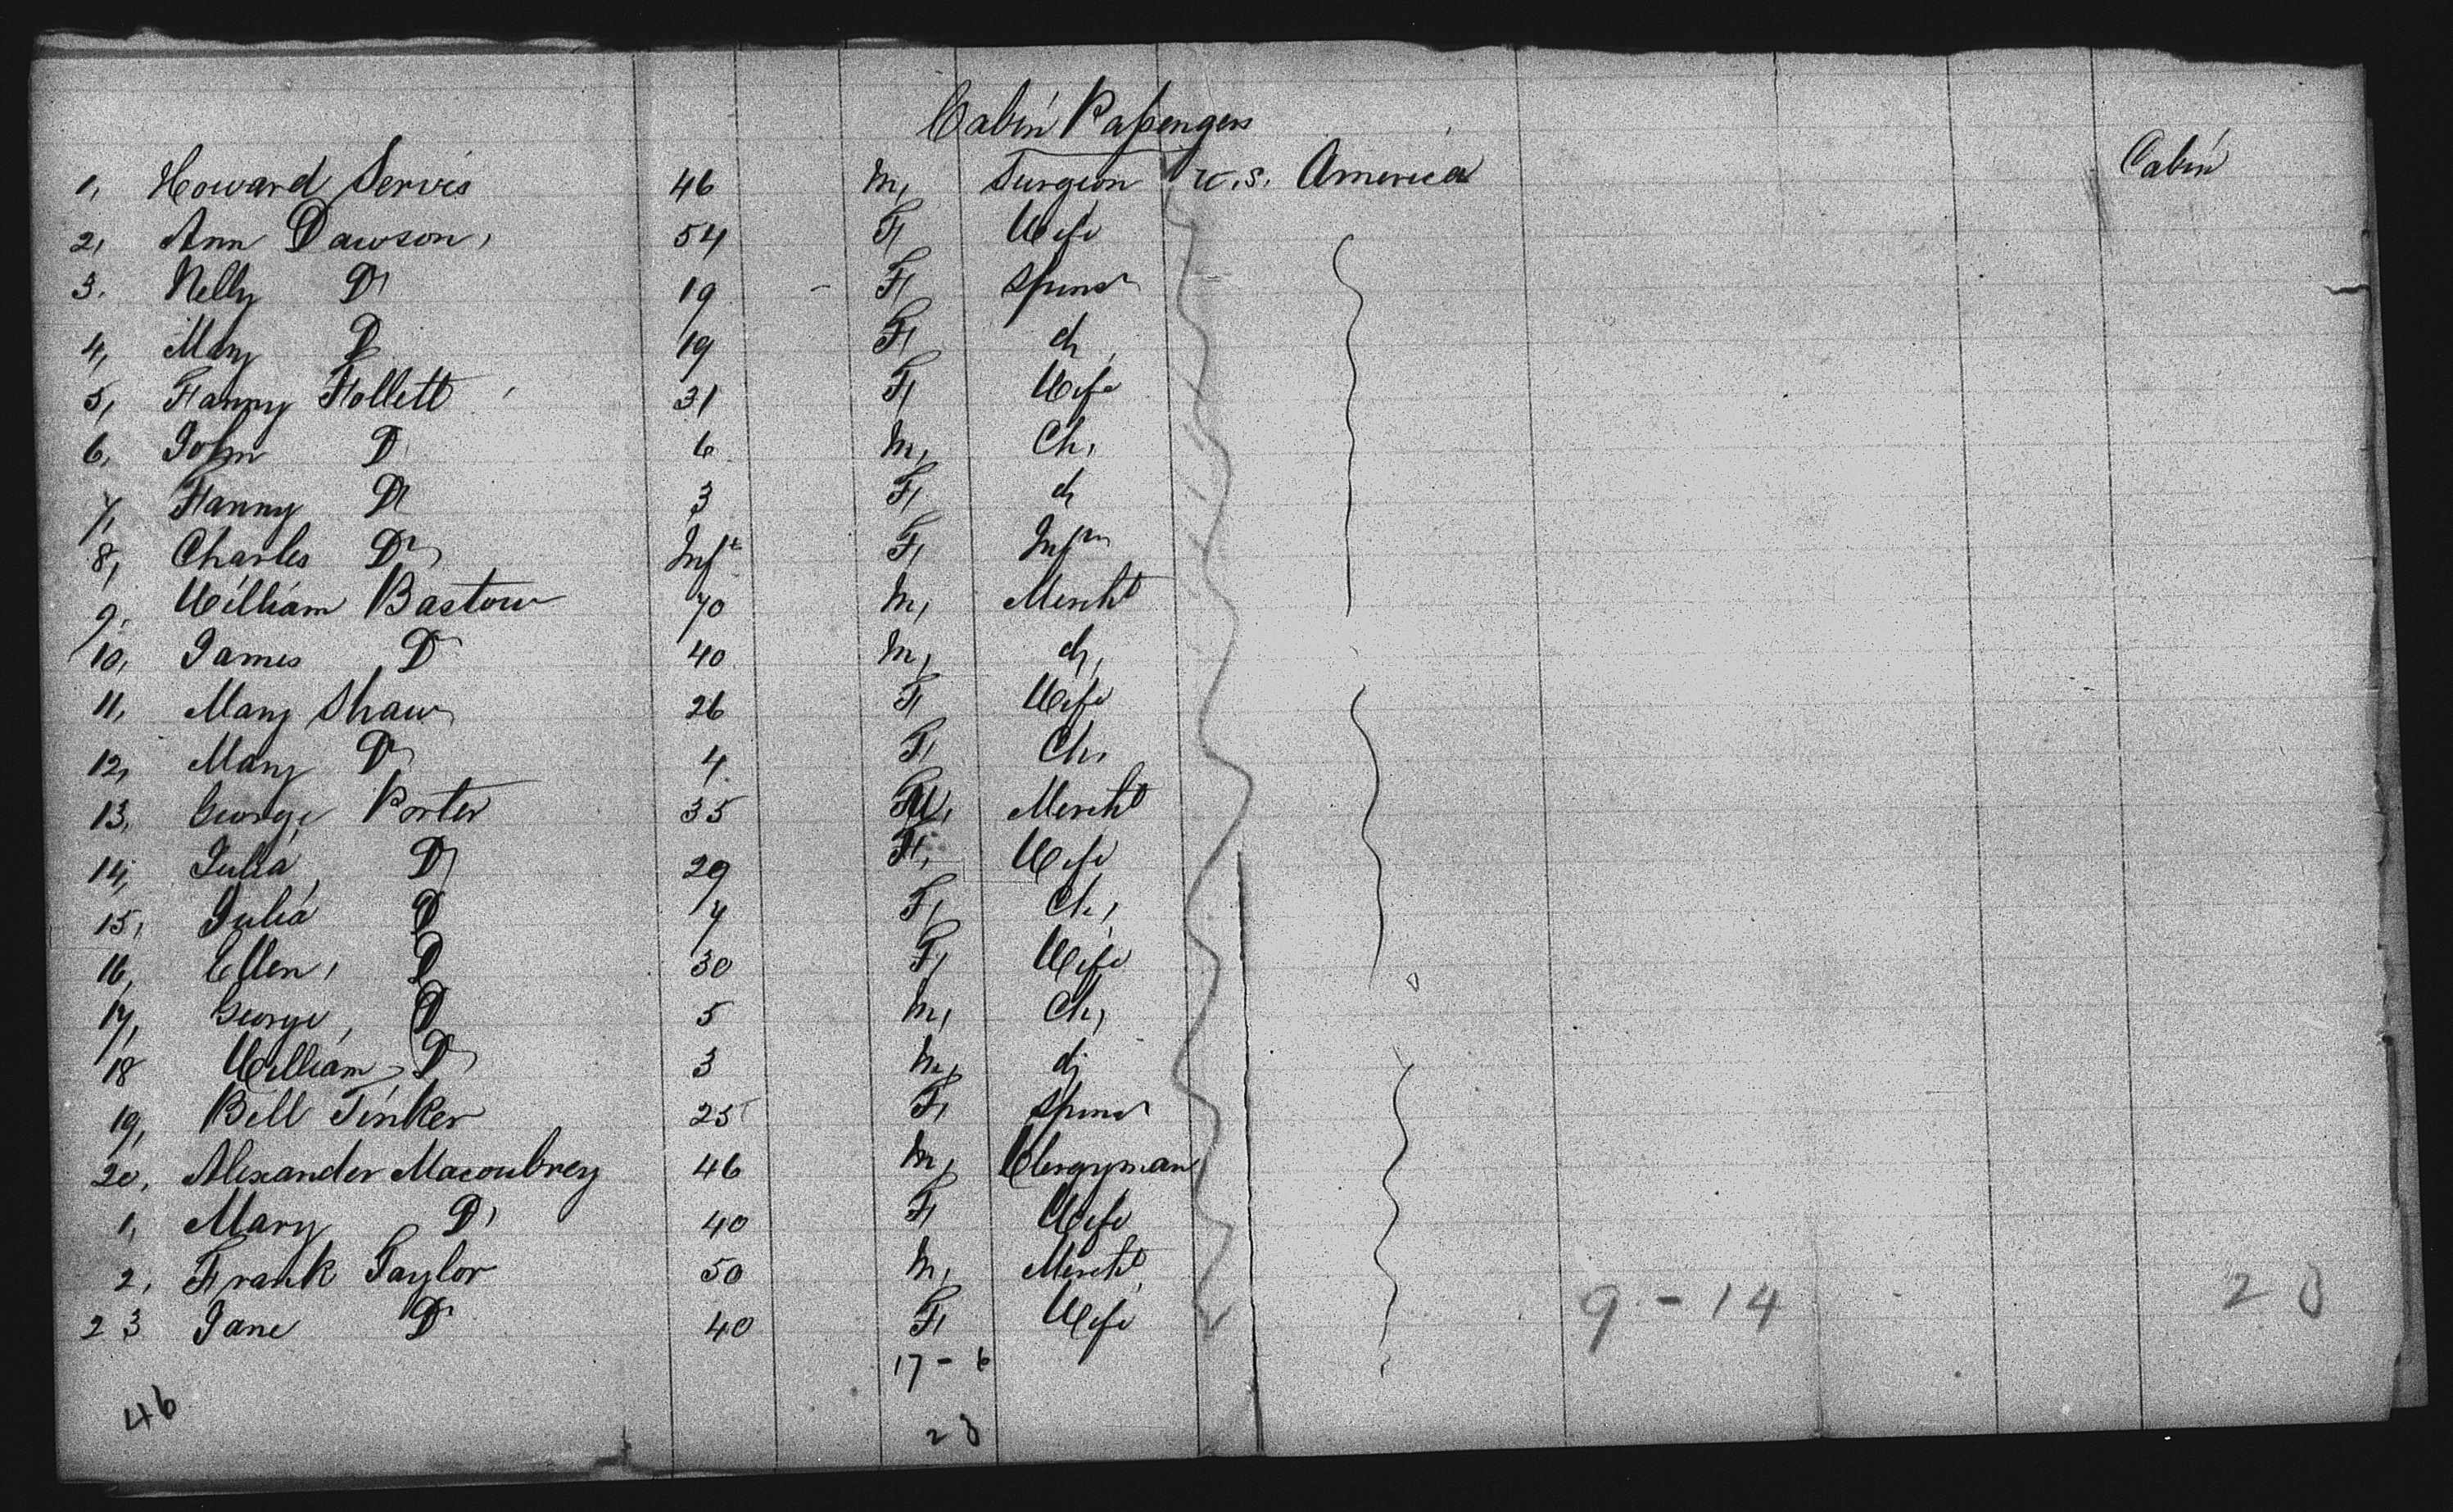 Cabin Passengers
1, Howard Servis 46 M, Surgeon U.S. America Cabin
2, Ann Dawson, 54 F, Wife
3. Nelly D, 19 - F, Spinsr
4, Mary D 19 F, d,
5, Fanny Follett 31 F, Wife
6, John D, 6 M, Ch,
7, Fanny D, 3 F, d,
8, Charles D, Inft F, Infn
9, William Bastow 70 M, Mercht
10, James D 40 M, d,
11, Mary Shaw 26 F, Wife
12, Mary D, 4 F, Ch,
13, George Porter 35 M, Mercht
14, Julia, D, 29 F, Wife
15, Julia D 7 F, Ch,
16, Ellen, D 30 F, Wife
17, George, D 5 M, Ch,
18 William D, 3 M, d,
19, Bell Tinker 25 F, Spinsr
20, Alexander Macoubrey 46 M, Clergyman
1, Mary D, 40 F, Wife
2, Frank Taylor 50 M, Mercht
23 Jane D, 40 F, Wife
9 - 14 23
17 - 6
46
23